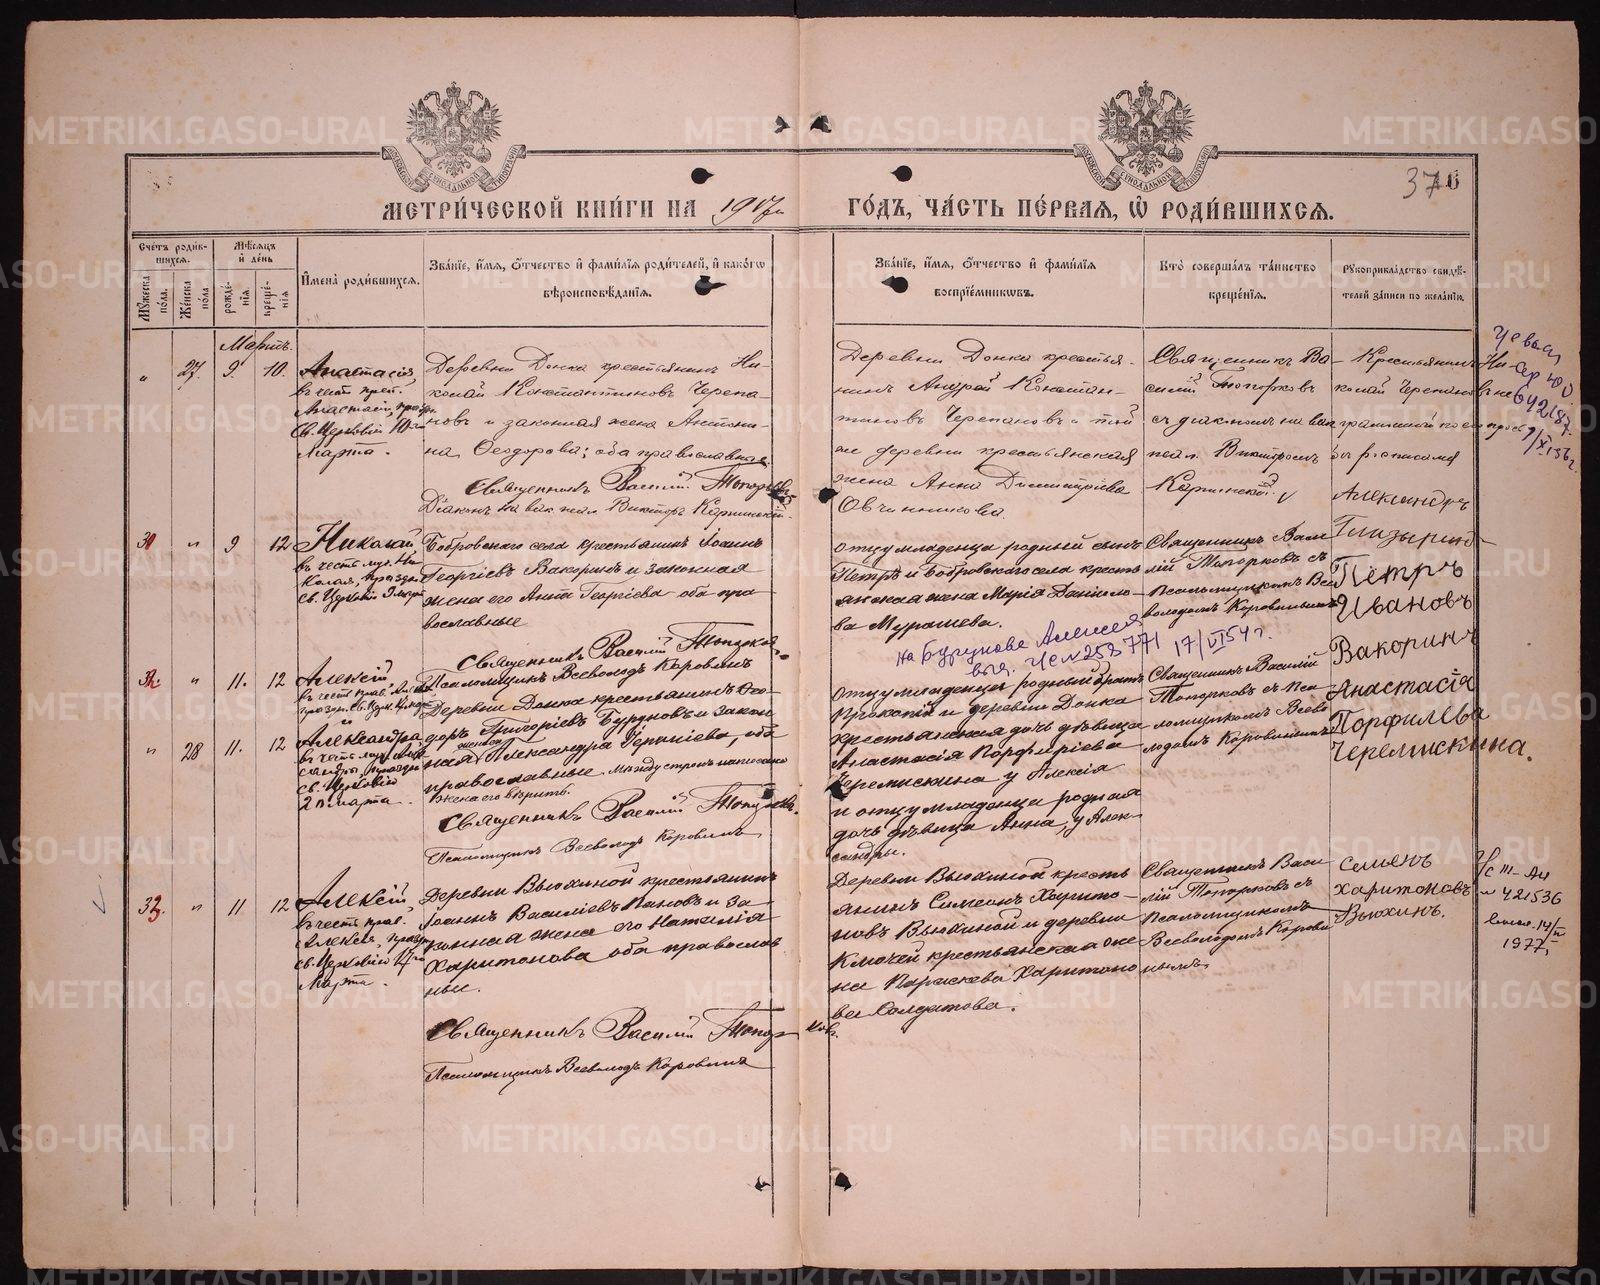 МЕТРИ́ЧЕСКОЙ КНИ́ГИ НА 1917 г.
ГО́ДЪ, ЧА́СТЬ ПЕ́РВАЯ, Ѡ РОДИ́ВШИХСѦ.
37
Сче́тъ роди́в-
шихся.
Мꙋ́жеска по́ла.
Же́нска по́ла.
Мѣ́сяцъ и де́нь
рожде́-
нія.
креще́-
нія.
Имена̀ роди́вшихсѧ.
Зва́нїе, и́мѧ, о́тчество и фами́лїѧ роди́телей, и како́гѡ
вѣроисповѣ́данїѧ.
Зва́нїе, и́мѧ, о́тчество и фами́лїѧ
воспрїе́мникѡвъ.
Кто̀ соверша́лъ та́инство
креще́нїѧ.
Рꙋкоприкла́дство свидѣ́-
телей за́писи по жела́нїю.
Мартъ.
27. 9. 10.
Анастасія
въ честь преп.
Анастасіи, праздн.
Св. Церковію 10го
Марта.
Деревни Донка крестьянинъ Ни-
колай Константиновъ Черепа-
новъ и законная жена Антони-
на Ѳеодорова; оба православные.
Священникъ Василій Топорковъ
Діаконъ на вак. псал. Викторъ Карпинскій.
Деревни Донка крестья-
нинъ Андрей Констан-
тиновъ Черепановъ и той
же деревни крестьянская
жена Анна Димитріева
Овчинникова.
Священникъ Ва-
силій Топорковъ
съ діакономъ на вак.
псал. Викторомъ
Карпинскій
Крестьянинъ Ни-
колай Черепановъ не
грамотный по его просьб
росписался
Александръ
30 " 9 12
Николай
въ честь муч. Ни
колая, праздн.
св. Церковію 9 марта
Бобровскаго села крестьянинъ Іоаннъ
Георгіевъ Вакоринъ и законная
жена его Анна Георгіева оба пра
вославные
Священникъ Василій Топорков
Псаломщикъ Всеволодъ Коровинъ
отцу младенца родный сынъ
Петръ и Бобровскаго села кресть
янская жена Марія Данило-
ва Мурашева.
Священникъ Васи
лій Топорковъ съ
псаломщикомъ Все
володомъ Коровинымъ
Петръ
Ивановъ
Вакоринъ
на Бурунова Алексея
выд. ЧС № 258771 17/VI 54 г.
" 11. 12
Алексій
" 28 11. 12
Александра
св. Церковію
Деревни Донка крестьянинъ Ѳео-
доръ Григорієвъ Буруновъ и закон
ная женою Александра Герасиміева, оба
православные. Между строкъ написано
жена его вѣрить.
Священникъ Василій Топорковъ.
Псаломщикъ Всеволодъ Коровинъ
отцу младенца родный братъ
Прокопій и деревни Донка
крестьянская дочь дѣвица
Анастасія Порфиріева
Черемискина у Алексія
и отцу младенца родная
дочь дѣвица Анна, у Алек-
сандры.
Священникъ Василій
Топорковъ съ пса
ломщикомъ Всево
лодомъ Коровинымъ
Анастасія
Порфилева
Черемискина.
" 11 12
Алексій
въ честь прав.
Алексія, праздн
св. Церковію 17го
Марта.
Деревни Вьюхиной крестьянинъ
Іоаннъ Василіевъ Пановъ и за
конная жена его Наталія
Харитонова оба православ
ные.
Священникъ Василій Топорковъ.
Псаломщикъ Всеволодъ Коровинъ
Деревни Вьюхиной кресть
янинъ Симеонъ Харито-
новъ Вьюхиной и деревни
Ключей крестьянская же
на Параскева Харитоно
ва Солдатова.
Священникъ Васи
лій Топорковъ съ
псаломщикомъ
Всеволодомъ Корови
нымъ.
Семенъ
Харитоновъ
Вьюхинъ.
№ 421536
1977.